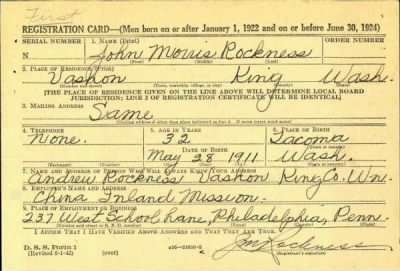 First
REGISTRATION CARD—(Men born on or after January 1, 1922 and on or before June 30, 1924)
SERIAL NUMBER 1. NAME (Print) ORDER NUMBER
N John Morris Rockness
(First) (Middle) (Last)
2. PLACE OF RESIDENCE (Print)
Vashon King Wash.
(Number and street) (Town, township, village, or city) (County) (State)
[THE PLACE OF RESIDENCE GIVEN ON THE LINE ABOVE WILL DETERMINE LOCAL BOARD
JURISDICTION; LINE 2 OF REGISTRATION CERTIFICATE WILL BE IDENTICAL]
3. MAILING ADDRESS
Same
4. TELEPHONE 5. AGE IN YEARS 6. PLACE OF BIRTH
None. 32 Tacoma
DATE OF BIRTH
May 28 1911 Wash.
(Exchange) (Number) (Mo.) (Day) (Yr.) (State or country)
7. NAME AND ADDRESS OF PERSON WHO WILL ALWAYS KNOW YOUR ADDRESS
Andrew Rockness Vashon King Co. Wn.
8. EMPLOYER'S NAME AND ADDRESS
China Inland Mission.
9. PLACE OF EMPLOYMENT OR BUSINESS
237 West School Lane, Philadelphia, Penn.
(Number and street or R. F. D. number) (Town) (County) (State)
I AFFIRM THAT I HAVE VERIFIED ABOVE ANSWERS AND THAT THEY ARE TRUE.
D. S. S. Form 1
(Revised 6-1-42) (over) J M Rockness
(Registrant's signature)